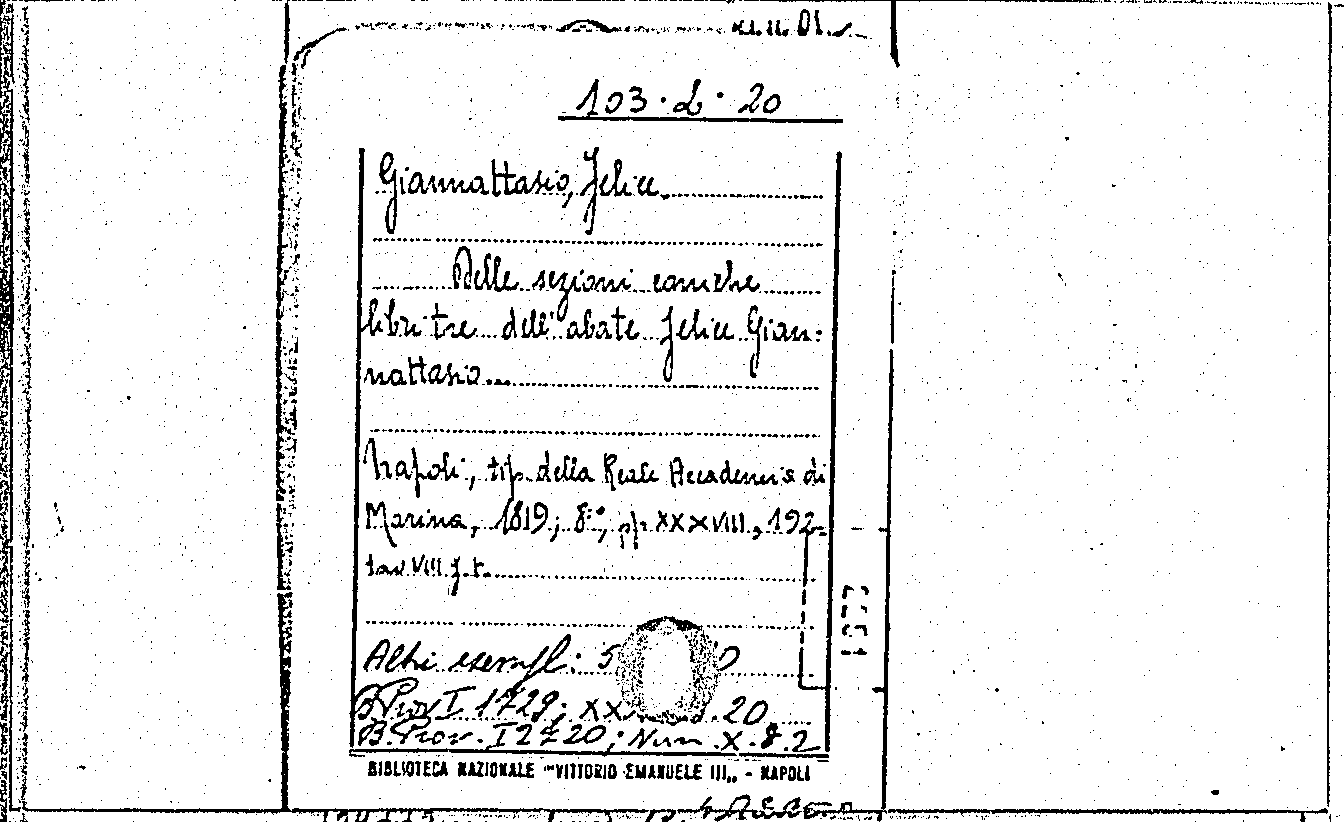 103.L.20
Giannattasio, Felice
Delle sezioni coniche
libri tre dell'abate Felice Gian-
nattasio...
Napoli, tip. della Reale Accademia di
Marina, 1819; 8°, pp. XXXVIII, 192
tav. VIII f. t.
Altri esempl: 5
B. Prov. I 1729; XX .20
B. Prov. I 2720; Num. X.8.2
BIBLIOTECA NAZIONALE "VITTORIO EMANUELE III„ - NAPOLI